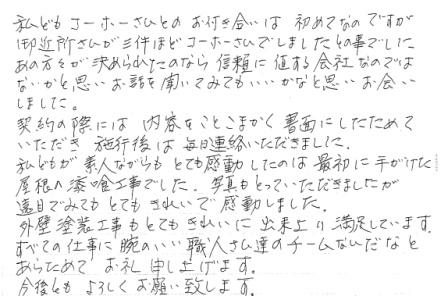 私ども コーホーさんとの お付き合いは 初めてなの ですが
御近所さんが三件ほどコーホーさんでしましたとの事でした
あの方々が決められたのなら 信頼に値する会社なのでは
ないかと思い お話を聞いてみてもいいかなと思い お会い
しました。
契約の際には 内容をことこまかく 書面にしたためて
いただき 施行後は 毎日連絡いただきました。
私どもが 素人ながらも とても感動したのは 最初に手がけた
屋根の漆喰工事でした。写真もとっていただきましたが
遠目でみても とても きれいで 感動しました。
外壁塗装工事もとてもきれいに 出来上り 満足しています。
すべての仕事に腕のいい 職人さん達のチームなんだなと
あらためて お礼申し上げます。
今後とも よろしくお願い致します。